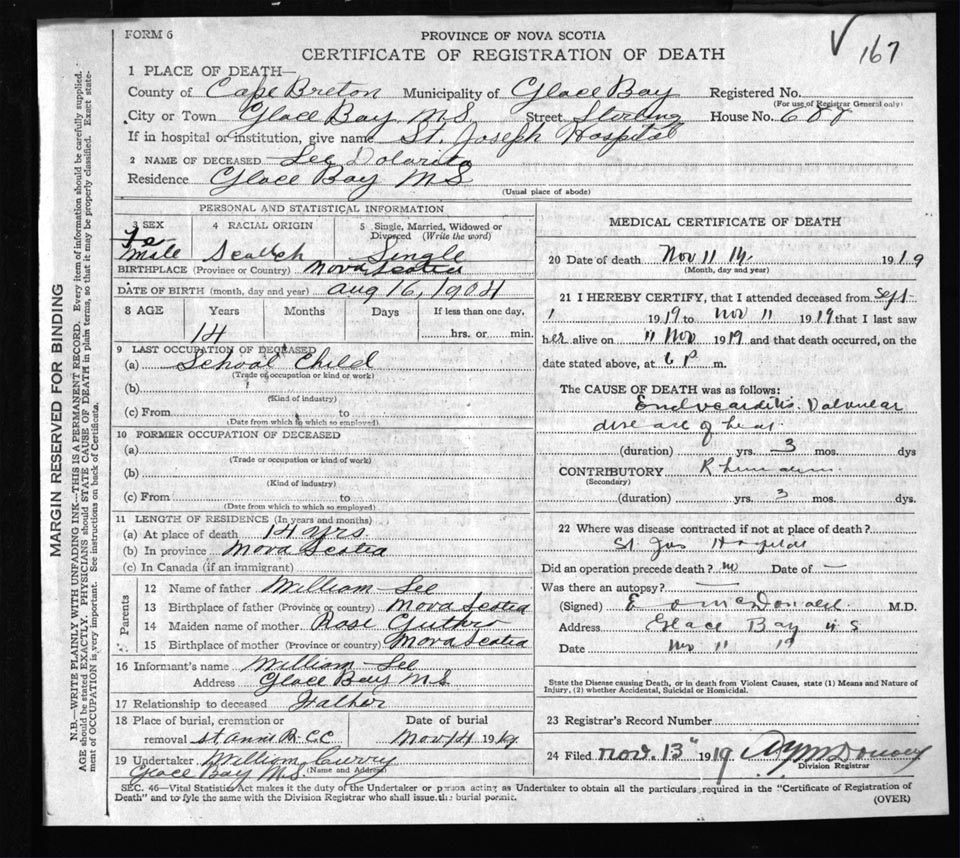 FORM 6
PROVINCE OF NOVA SCOTIA
167
CERTIFICATE OF REGISTRATION OF DEATH
1 PLACE OF DEATH—
County of Cape Breton Municipality of Glace Bay Registered No.
(For use of Registrar General only)
City or Town Glace Bay N.S. Street Sterling House No. 688
If in hospital or institution, give name St. Joseph Hospital
2 NAME OF DECEASED Lee Dolorita
Residence Glace Bay N S
(Usual place of abode)
PERSONAL AND STATISTICAL INFORMATION
3 SEX 4 RACIAL ORIGIN 5 Single, Married, Widowed or Divorced (Write the word)
Fe male Scotch Single
BIRTHPLACE (Province or Country) Nova Scotia
DATE OF BIRTH (month, day and year) Aug 16, 1904
8 AGE Years Months Days If less than one day,
14 hrs. or min.
9 LAST OCCUPATION OF DECEASED
(a) School Child
(Trade or occupation or kind or work)
(b)
(Kind of industry)
(c) From to
(Date from which to which so employed)
10 FORMER OCCUPATION OF DECEASED
(a)
(Trade or occupation or kind of work)
(b)
(Kind of industry)
(c) From to
(Date from which to which so employed)
11 LENGTH OF RESIDENCE (In years and months)
(a) At place of death 14 yrs.
(b) In province Nova Scotia
(c) In Canada (if an immigrant)
Parents
12 Name of father William Lee
13 Birthplace of father (Province or country) Nova Scotia
14 Maiden name of mother Rose Guthro
15 Birthplace of mother (Province or country) Nova Scotia
16 Informant's name William Lee
Address Glace Bay N S
17 Relationship to deceased Father
18 Place of burial, cremation or Date of burial
removal St Anns R.C.C Nov 14 1919
19 Undertaker William Curry
(Name and Address)
Glace Bay N.S.
MEDICAL CERTIFICATE OF DEATH
20 Date of death Nov 11 th 1919
(Month, day and year)
21 I HEREBY CERTIFY, that I attended deceased from Sept
1 1919 to Nov 11 1919 that I last saw
her alive on 11 Nov 1919 and that death occurred, on the
date stated above, at 6 P m.
The CAUSE OF DEATH was as follows:
Endocarditis Valvular
disease of heart
(duration) yrs. 3 mos. dys
CONTRIBUTORY
(Secondary)
(duration) yrs. 3 mos. dys.
22 Where was disease contracted if not at place of death?
St. Jos Hospital
Did an operation precede death? no Date of —
Was there an autopsy? —
(Signed) E O McDonald M.D.
Address Glace Bay N S
Date Nov 11 19
State the Disease causing Death, or in death from Violent Causes, state (1) Means and Nature of
Injury, (2) whether Accidental, Suicidal or Homicidal.
23 Registrar's Record Number
24 Filed Nov. 13" 1919
Division Registrar
SEC. 46—Vital Statistics Act makes it the duty of the Undertaker or person acting as Undertaker to obtain all the particulars required in the "Certificate of Registration of
Death" and to fyle the same with the Division Registrar who shall issue the burial permit.
(OVER)
MARGIN RESERVED FOR BINDING
N.B.—WRITE PLAINLY WITH UNFADING INK—THIS IS A PERMANENT RECORD. Every item of information should be carefully supplied.
AGE should be stated EXACTLY. PHYSICIANS should STATE CAUSE OF DEATH in plain terms, so that it may be properly classified. Exact state-
ment of OCCUPATION is very important. See instructions on back of Certificate.